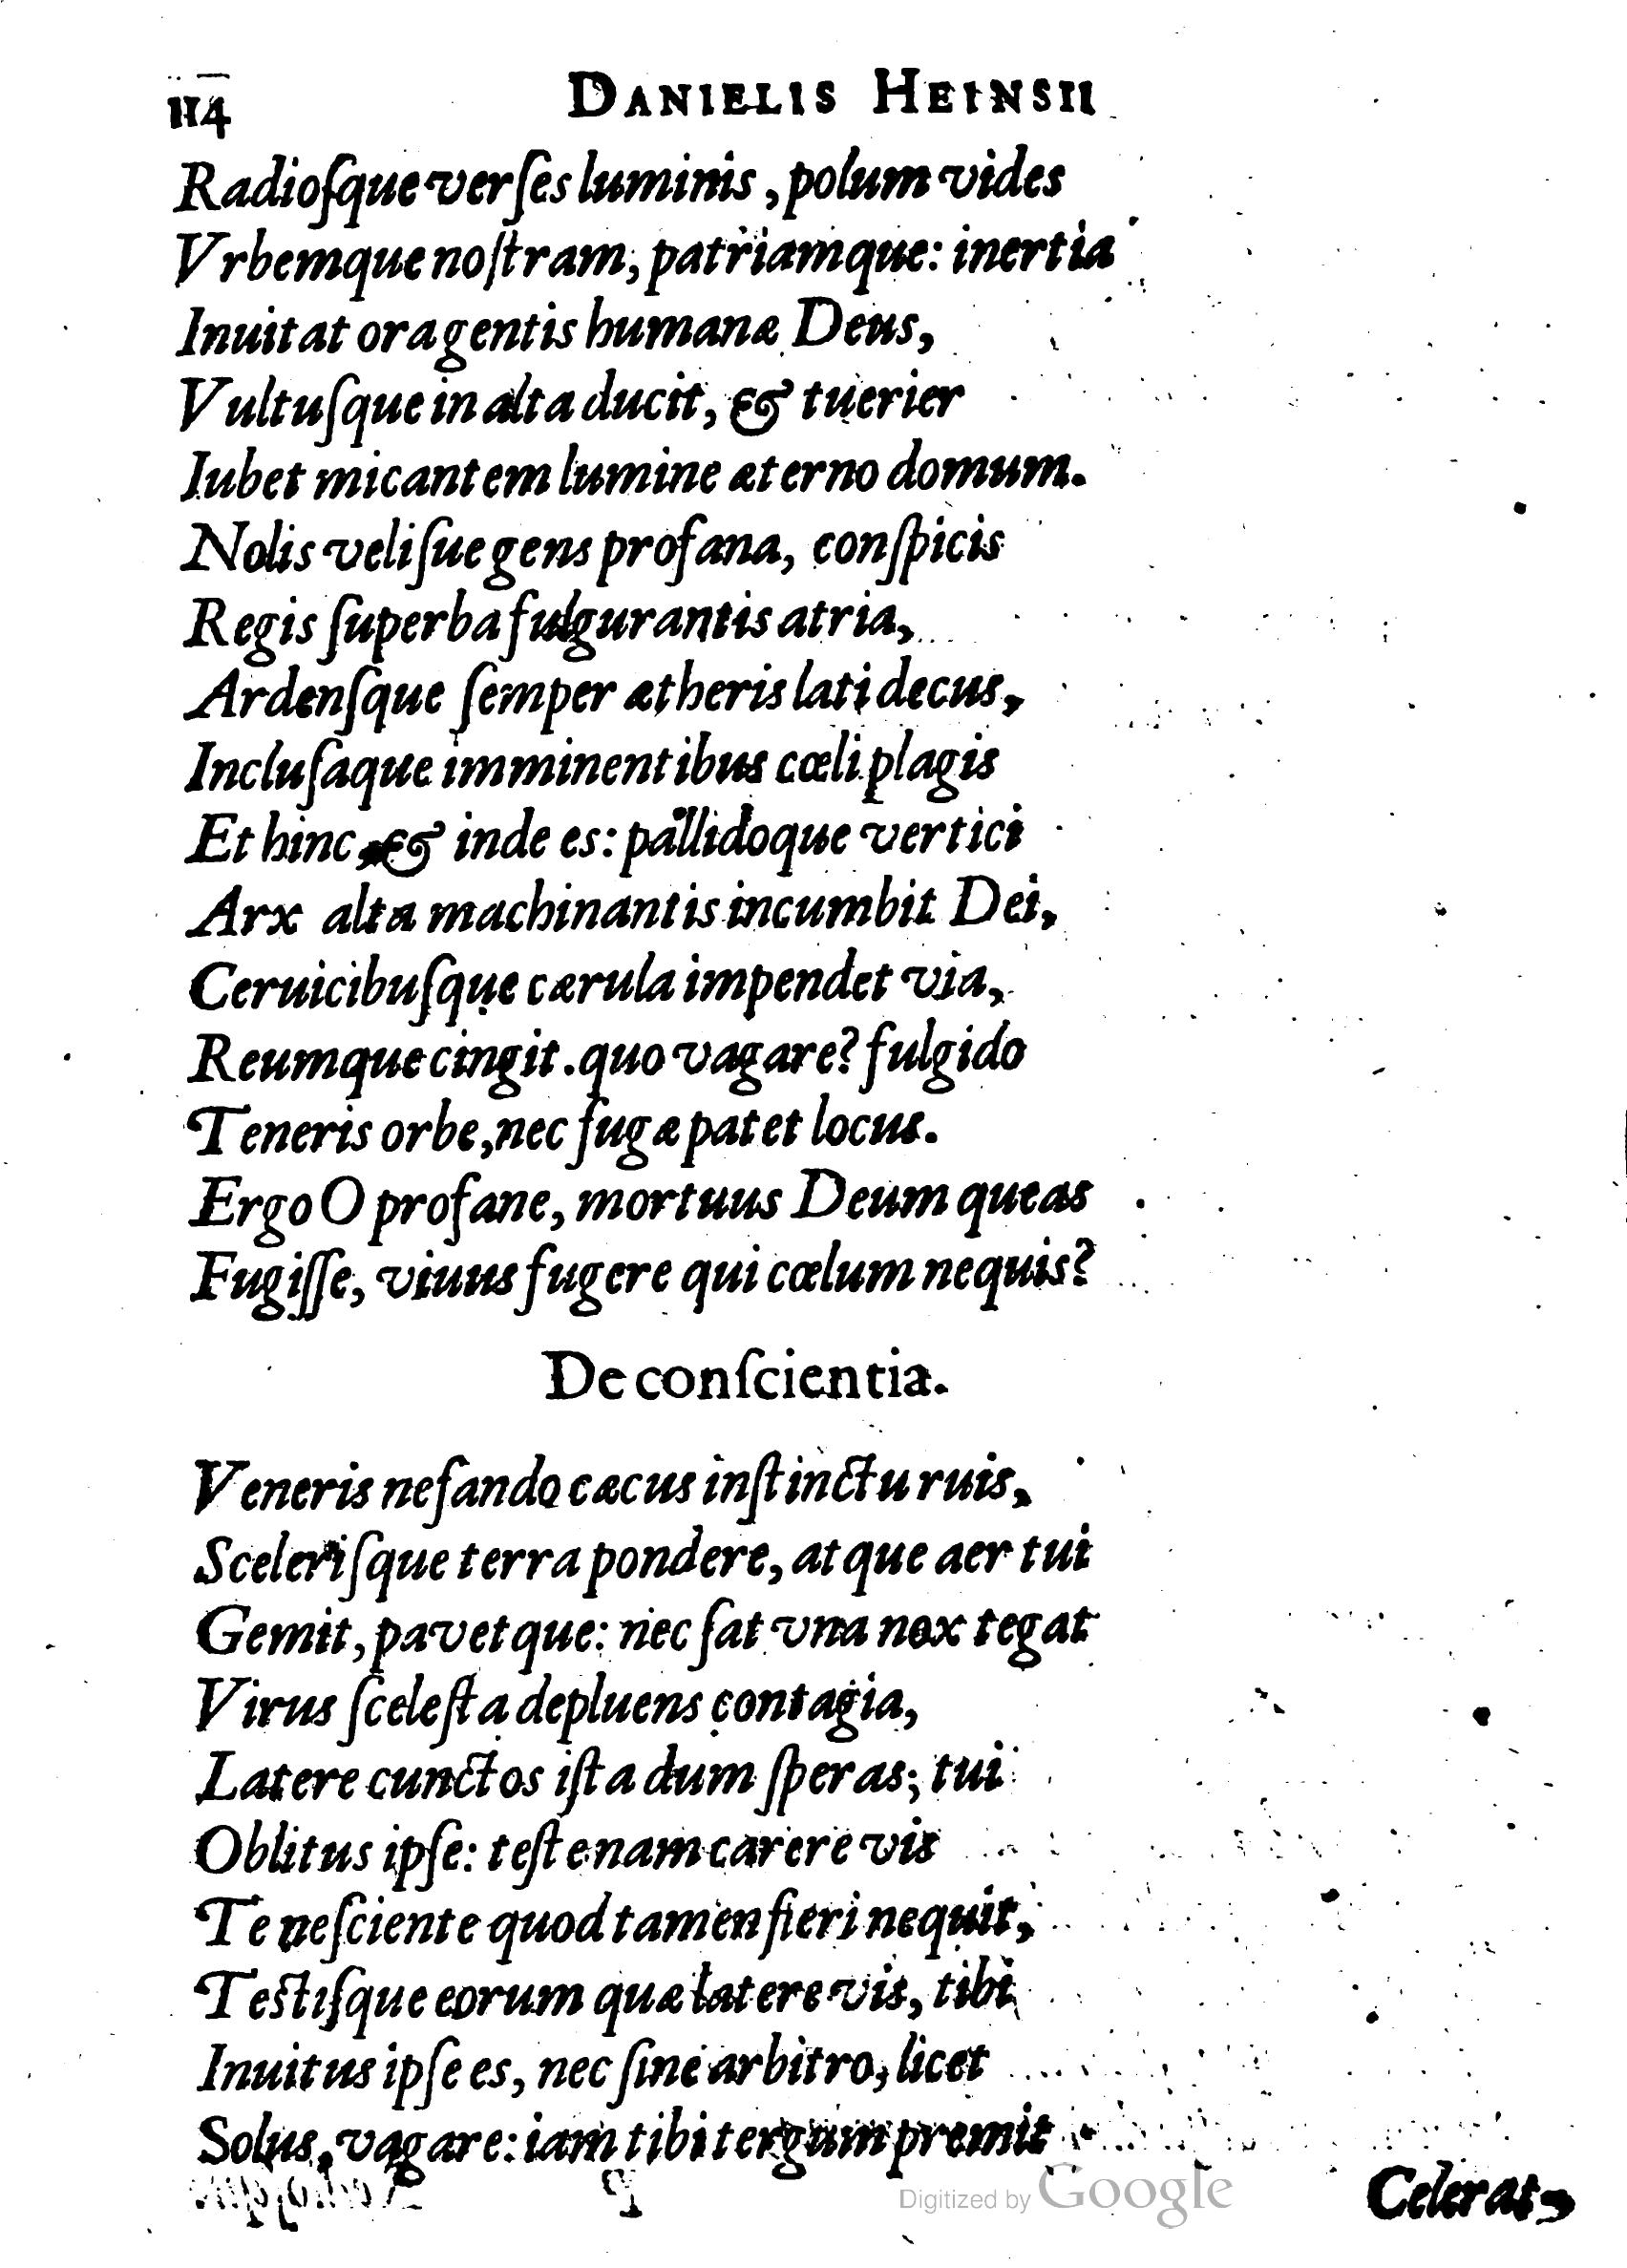 114 DANIELIS HEINSII
Radioſque verſes luminis, polum vides
Vrbemque noſtram, patriamque: inertia
Inuitat ora gentis humanæ Deus,
Vultuſque in alta ducit, & tuerier
Iubet micantem lumine æterno domum.
Nolis veliſue gens profana, conſpicis
Regis ſuperba fulgurantis atria,
Ardenſque ſemper ætheris lati decus,
Incluſaque imminentibus cœli plagis
Et hinc, & inde es: pallidoque vertici
Arx alta machinantis incumbit Dei,
Ceruicibuſque cærula impendet via,
Reumque cingit. quo vagare? fulgido
Teneris orbe, nec fugæ patet locus.
Ergo O profane, mortuus Deum queas
Fugiſſe, viuus fugere qui cœlum nequis?
De conſcientia.
Veneris nefando cæcus inſtinctu ruis,
Sceleriſque terra pondere, atque aer tui
Gemit, pavetque: nec ſat vna nox tegat
Virus ſceleſta depluens contagia,
Latere cunctos iſta dum ſperas; tui
Oblitus ipſe: teſte nam carere vis
Te neſciente quod tamen fieri nequit,
Teſtiſque eorum quæ latere vis, tibi
Inuitus ipſe es, nec ſine arbitro, licet
Solus, vagare: iam tibi tergum premit
P
Digitized by Google
Celerat,